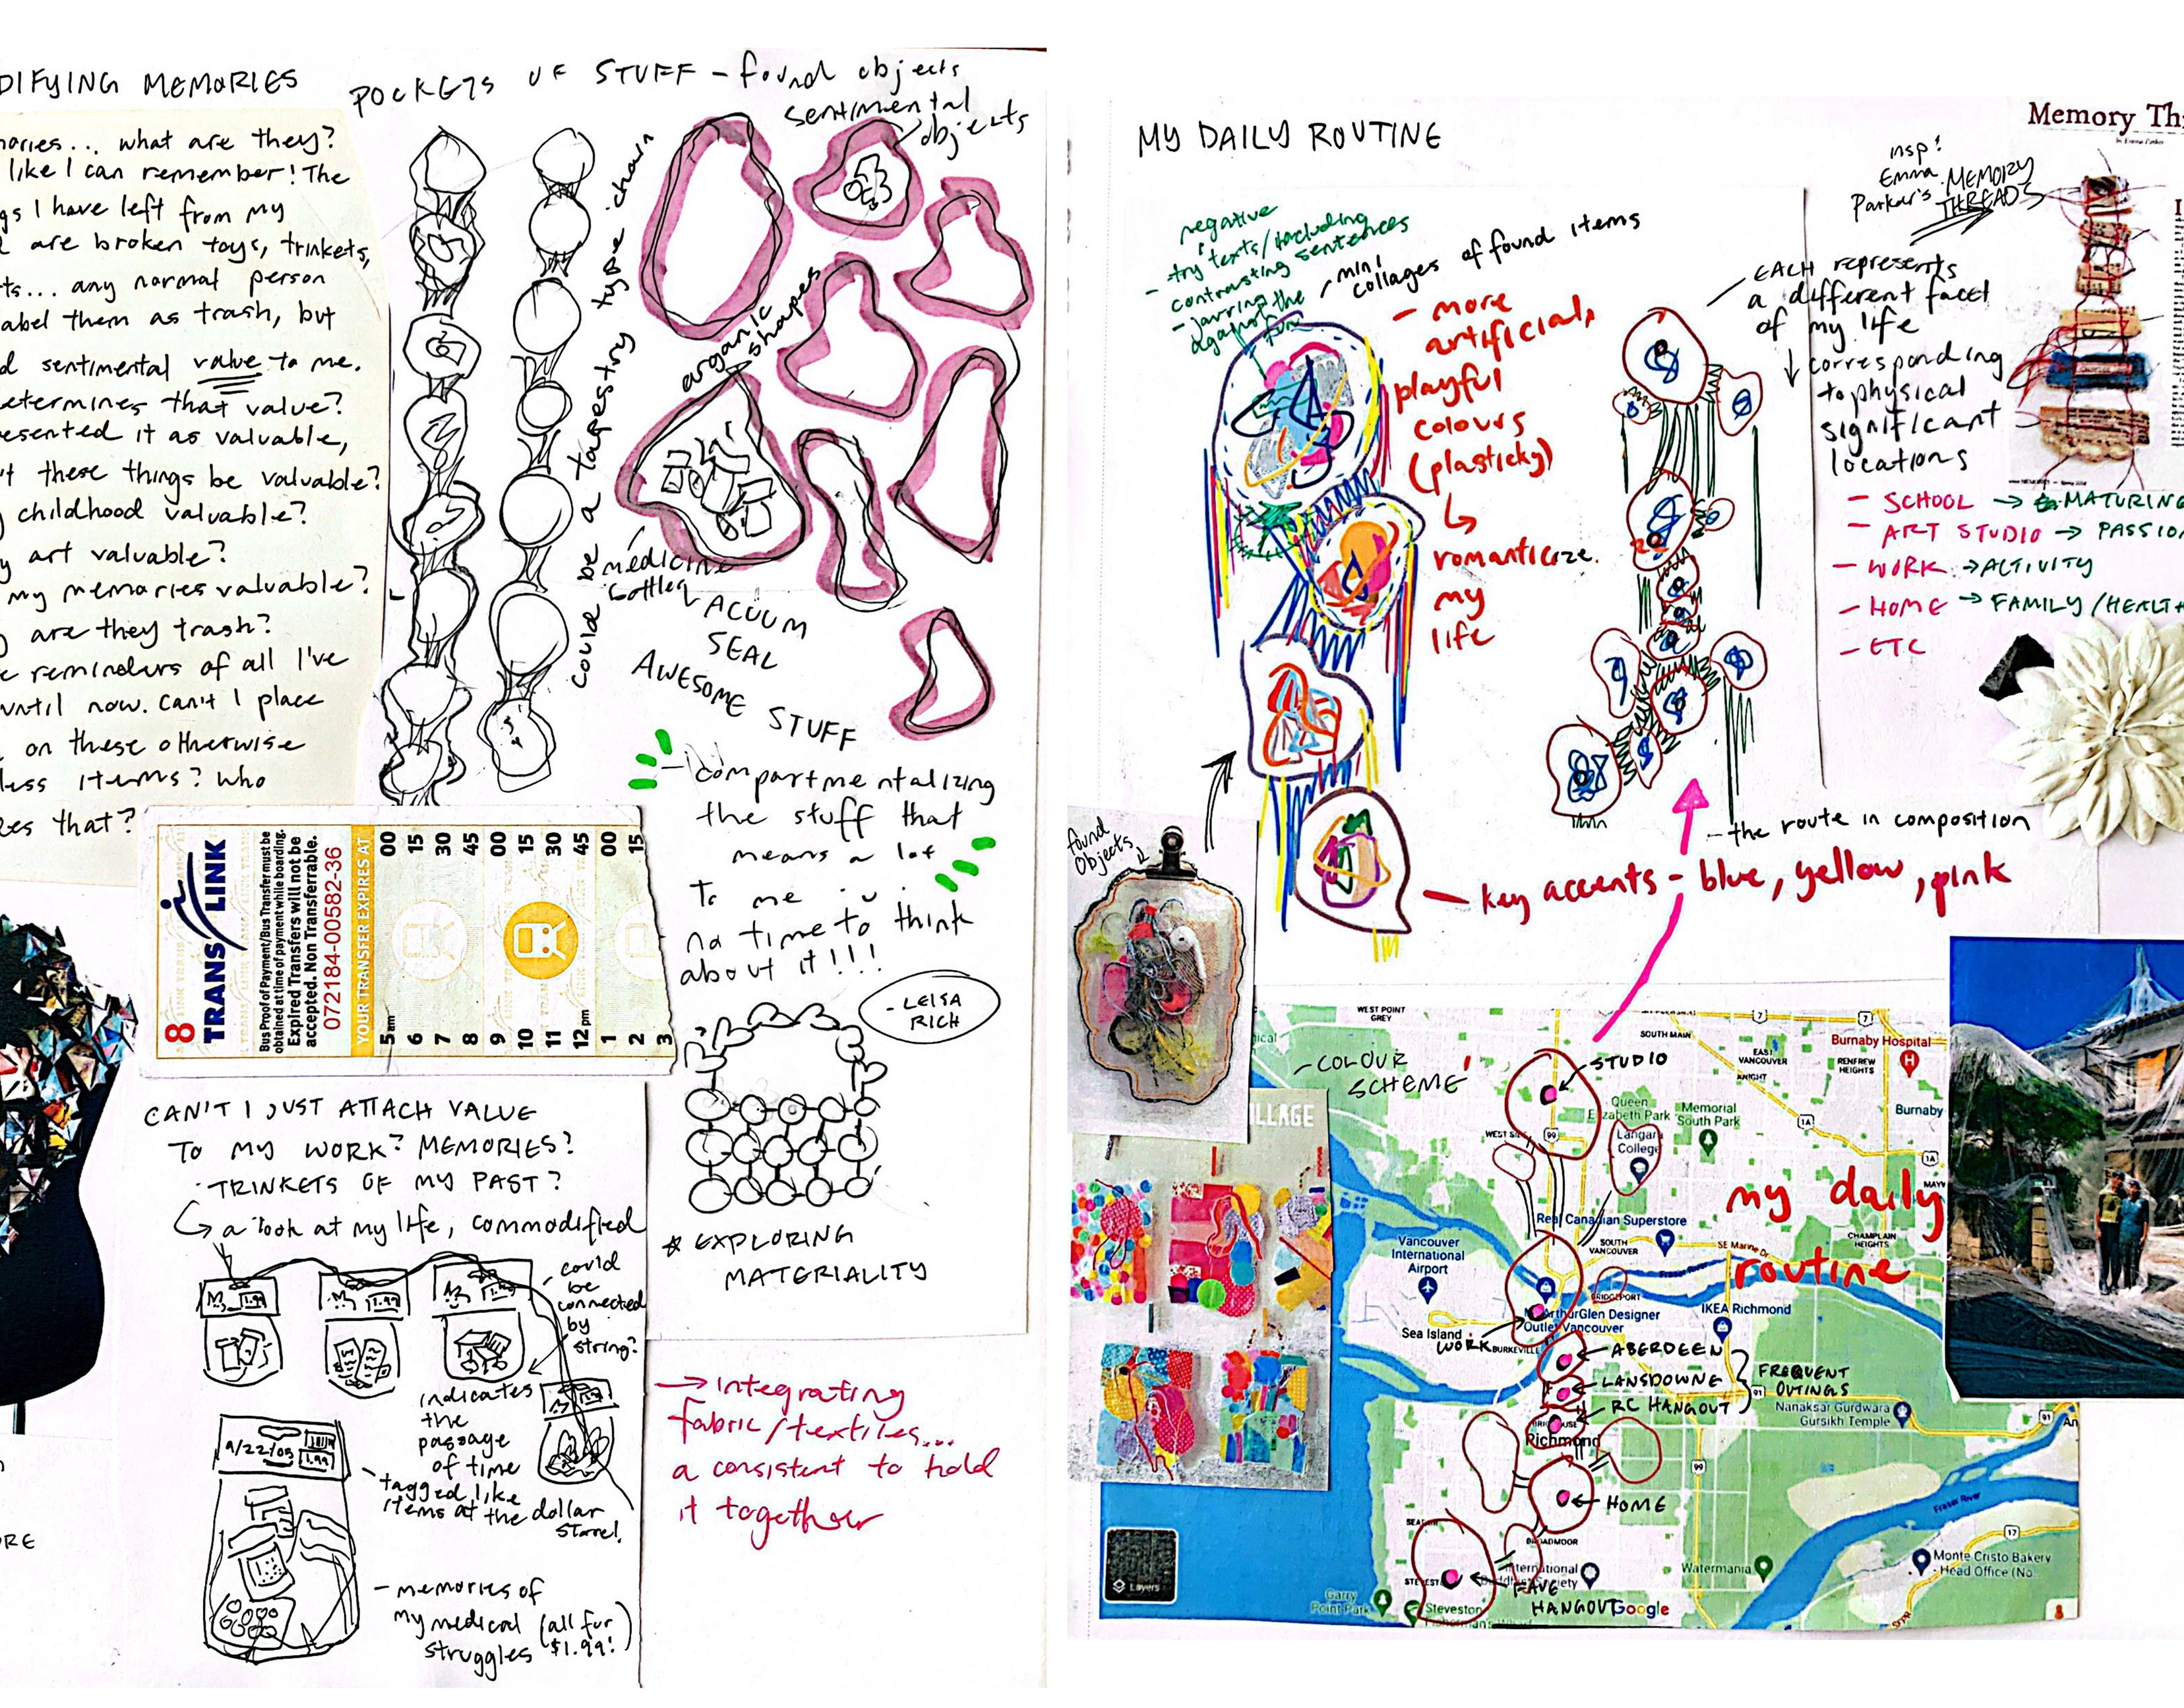 DIFYING MEMORIES
ories... what are they?
like I can remember! The
gs I have left from my
are broken toys, trinkets,
ts... any normal person
abel them as trash, but
d sentimental value to me.
etermines that value?
esented it as valuable,
't these things be valuable?
childhood valuable?
y art valuable?
my memories valuable?
y are they trash?
e reminders of all I've
until now. Can't I place
on these otherwise
less items? Who
es that?
POCKETS OF STUFF - found objects
sentimental
objects
could be a tapestry type chain
organic
shapes
medicine
bottles
VACUUM
SEAL
AWESOME STUFF
- compartmentalizing
the stuff that
means a lot
to me
no time to think
about it!!!
- LEISA
RICH
8
TRANSLINK
Bus Proof of Payment/Bus Transfer must be
obtained at time of payment while boarding.
Expired Transfers will not be
accepted. Non Transferrable.
0721184-00582-36
YOUR TRANSFER EXPIRES AT
00 15 30 45 00 15 30 45 00 15
5 am 6 7 8 9 10 11 12 pm 1 2 3
CAN'T I JUST ATTACH VALUE
TO MY WORK? MEMORIES?
TRINKETS OF MY PAST?
a look at my life, commodified
1.99
1.99
could
be
connected
by
string?
indicates
the
passage
of time
9/22/05
1.99
- tagged like
items at the dollar
store!
- memories of
my medical (all for
struggles $1.99!)
RE
* EXPLORING
MATERIALITY
→ integrating
fabric/textiles...
a consistent to hold
it together
MY DAILY ROUTINE
negative
- try texts/including
contrasting sentences
- jarring
against the
fun
mini
collages of found items
- more
artificial,
playful
colours
(plasticky)
romanticize
my
life
insp!
Emma
Parker's MEMORY
THREADS
Memory Th
by Emma Parker
- EACH represents
a different facet
of my life
corresponding
to physical
significant
locations
- SCHOOL → MATURING
- ART STUDIO → PASSIO
- WORK → ACTIVITY
- HOME → FAMILY/HEALTH
- ETC
- the route in composition
- key accents - blue, yellow, pink
found
objects
- COLOUR
SCHEME!
ILLAGE
my daily
routine
WEST POINT
GREY
SOUTH MAIN
7
7
EAST
VANCOUVER
KNIGHT
RENFREW
HEIGHTS
Burnaby Hospital
H
STUDIO
Queen
Elizabeth Park
Memorial
South Park
1A
Burnaby
WEST SI
99
Langara
College
1A
Real Canadian Superstore
SOUTH
VANCOUVER
SE Marine Dr
CHAMPLAIN
HEIGHTS
Vancouver
International
Airport
Fraser River
BRIDGEPORT
McArthurGlen Designer
Outlet Vancouver
IKEA Richmond
Sea Island
WORK
BURKEVILLE
ABERDEEN
LANSDOWNE
RC HANGOUT
FREQUENT
OUTINGS
91
Nanaksar Gurdwara
Gursikh Temple
91
Richmond
99
HOME
BROADMOOR
Fraser River
17
International
Buddhist Society
Watermania
Monte Cristo Bakery
- Head Office (No.
Layers
Garry
Point Park
Steveston
FAVE
HANGOUT
Google